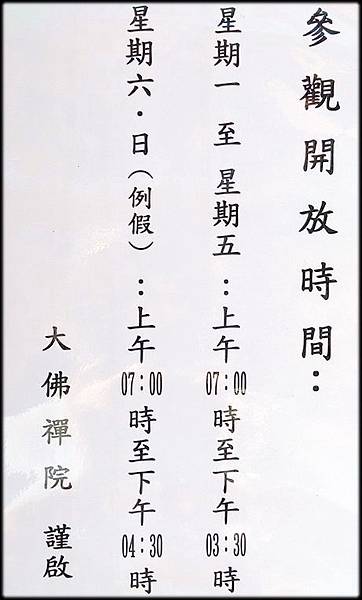 參觀開放時間：
星期一至星期五：上午07：00時至下午03：30時
星期六．日（例假）：上午07：00時至下午04：30時
大佛禪院 謹啟